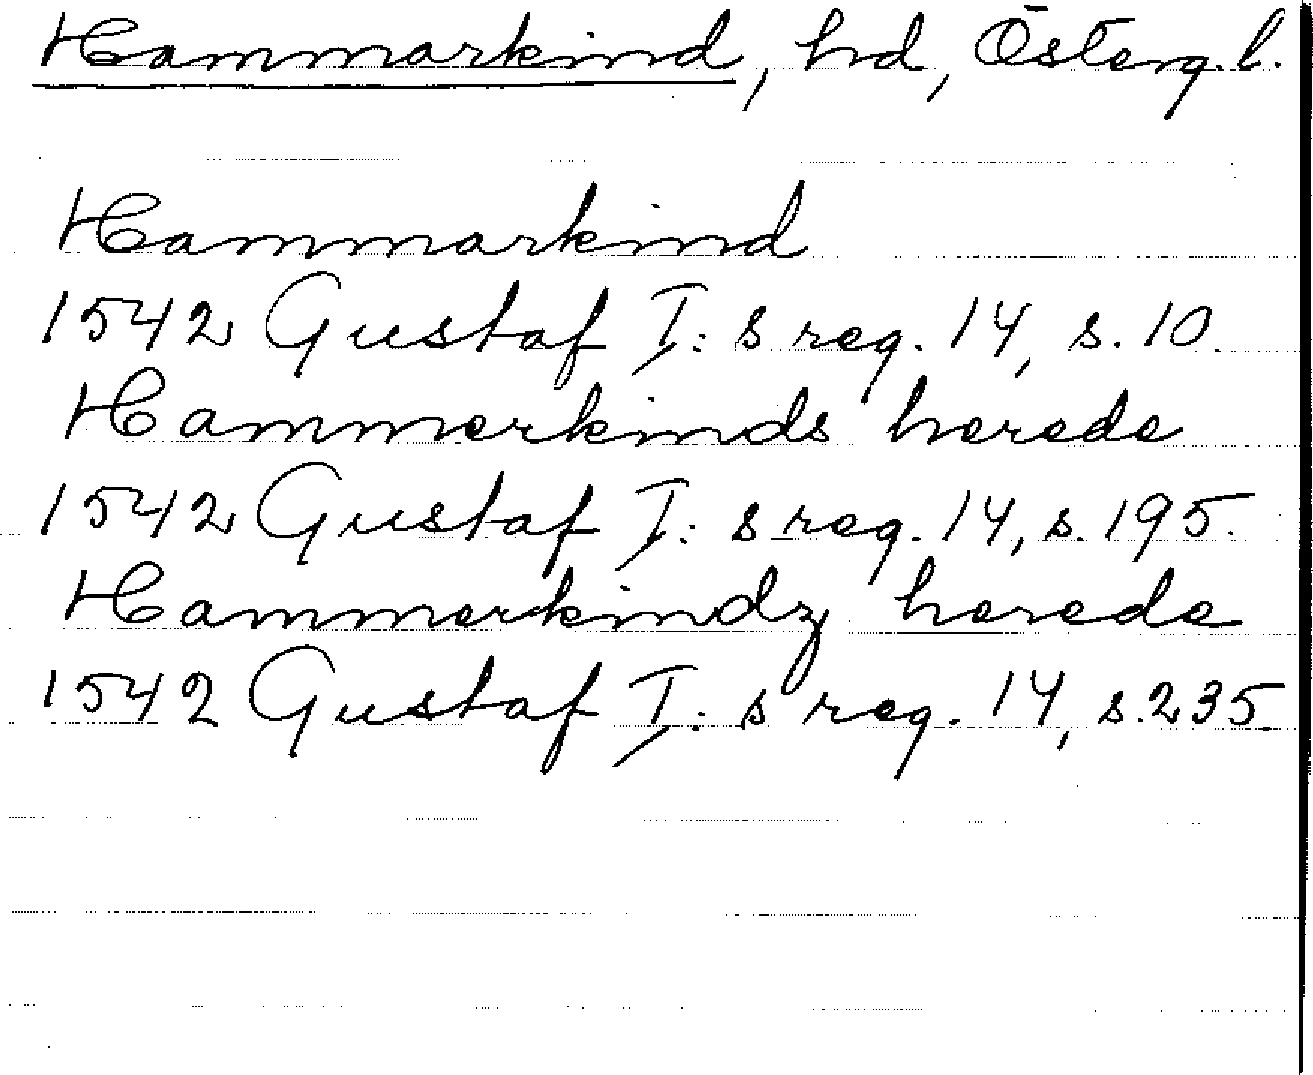 Hammarkind, hd, Österg. l.
Hammarkind
1542 Gustaf I: s reg. 14, s. 10.
Hammerkinds herede
1542 Gustaf I: s reg. 14, s. 195.
Hammerkindz herede
1542 Gustaf I: s reg. 14, s. 235.